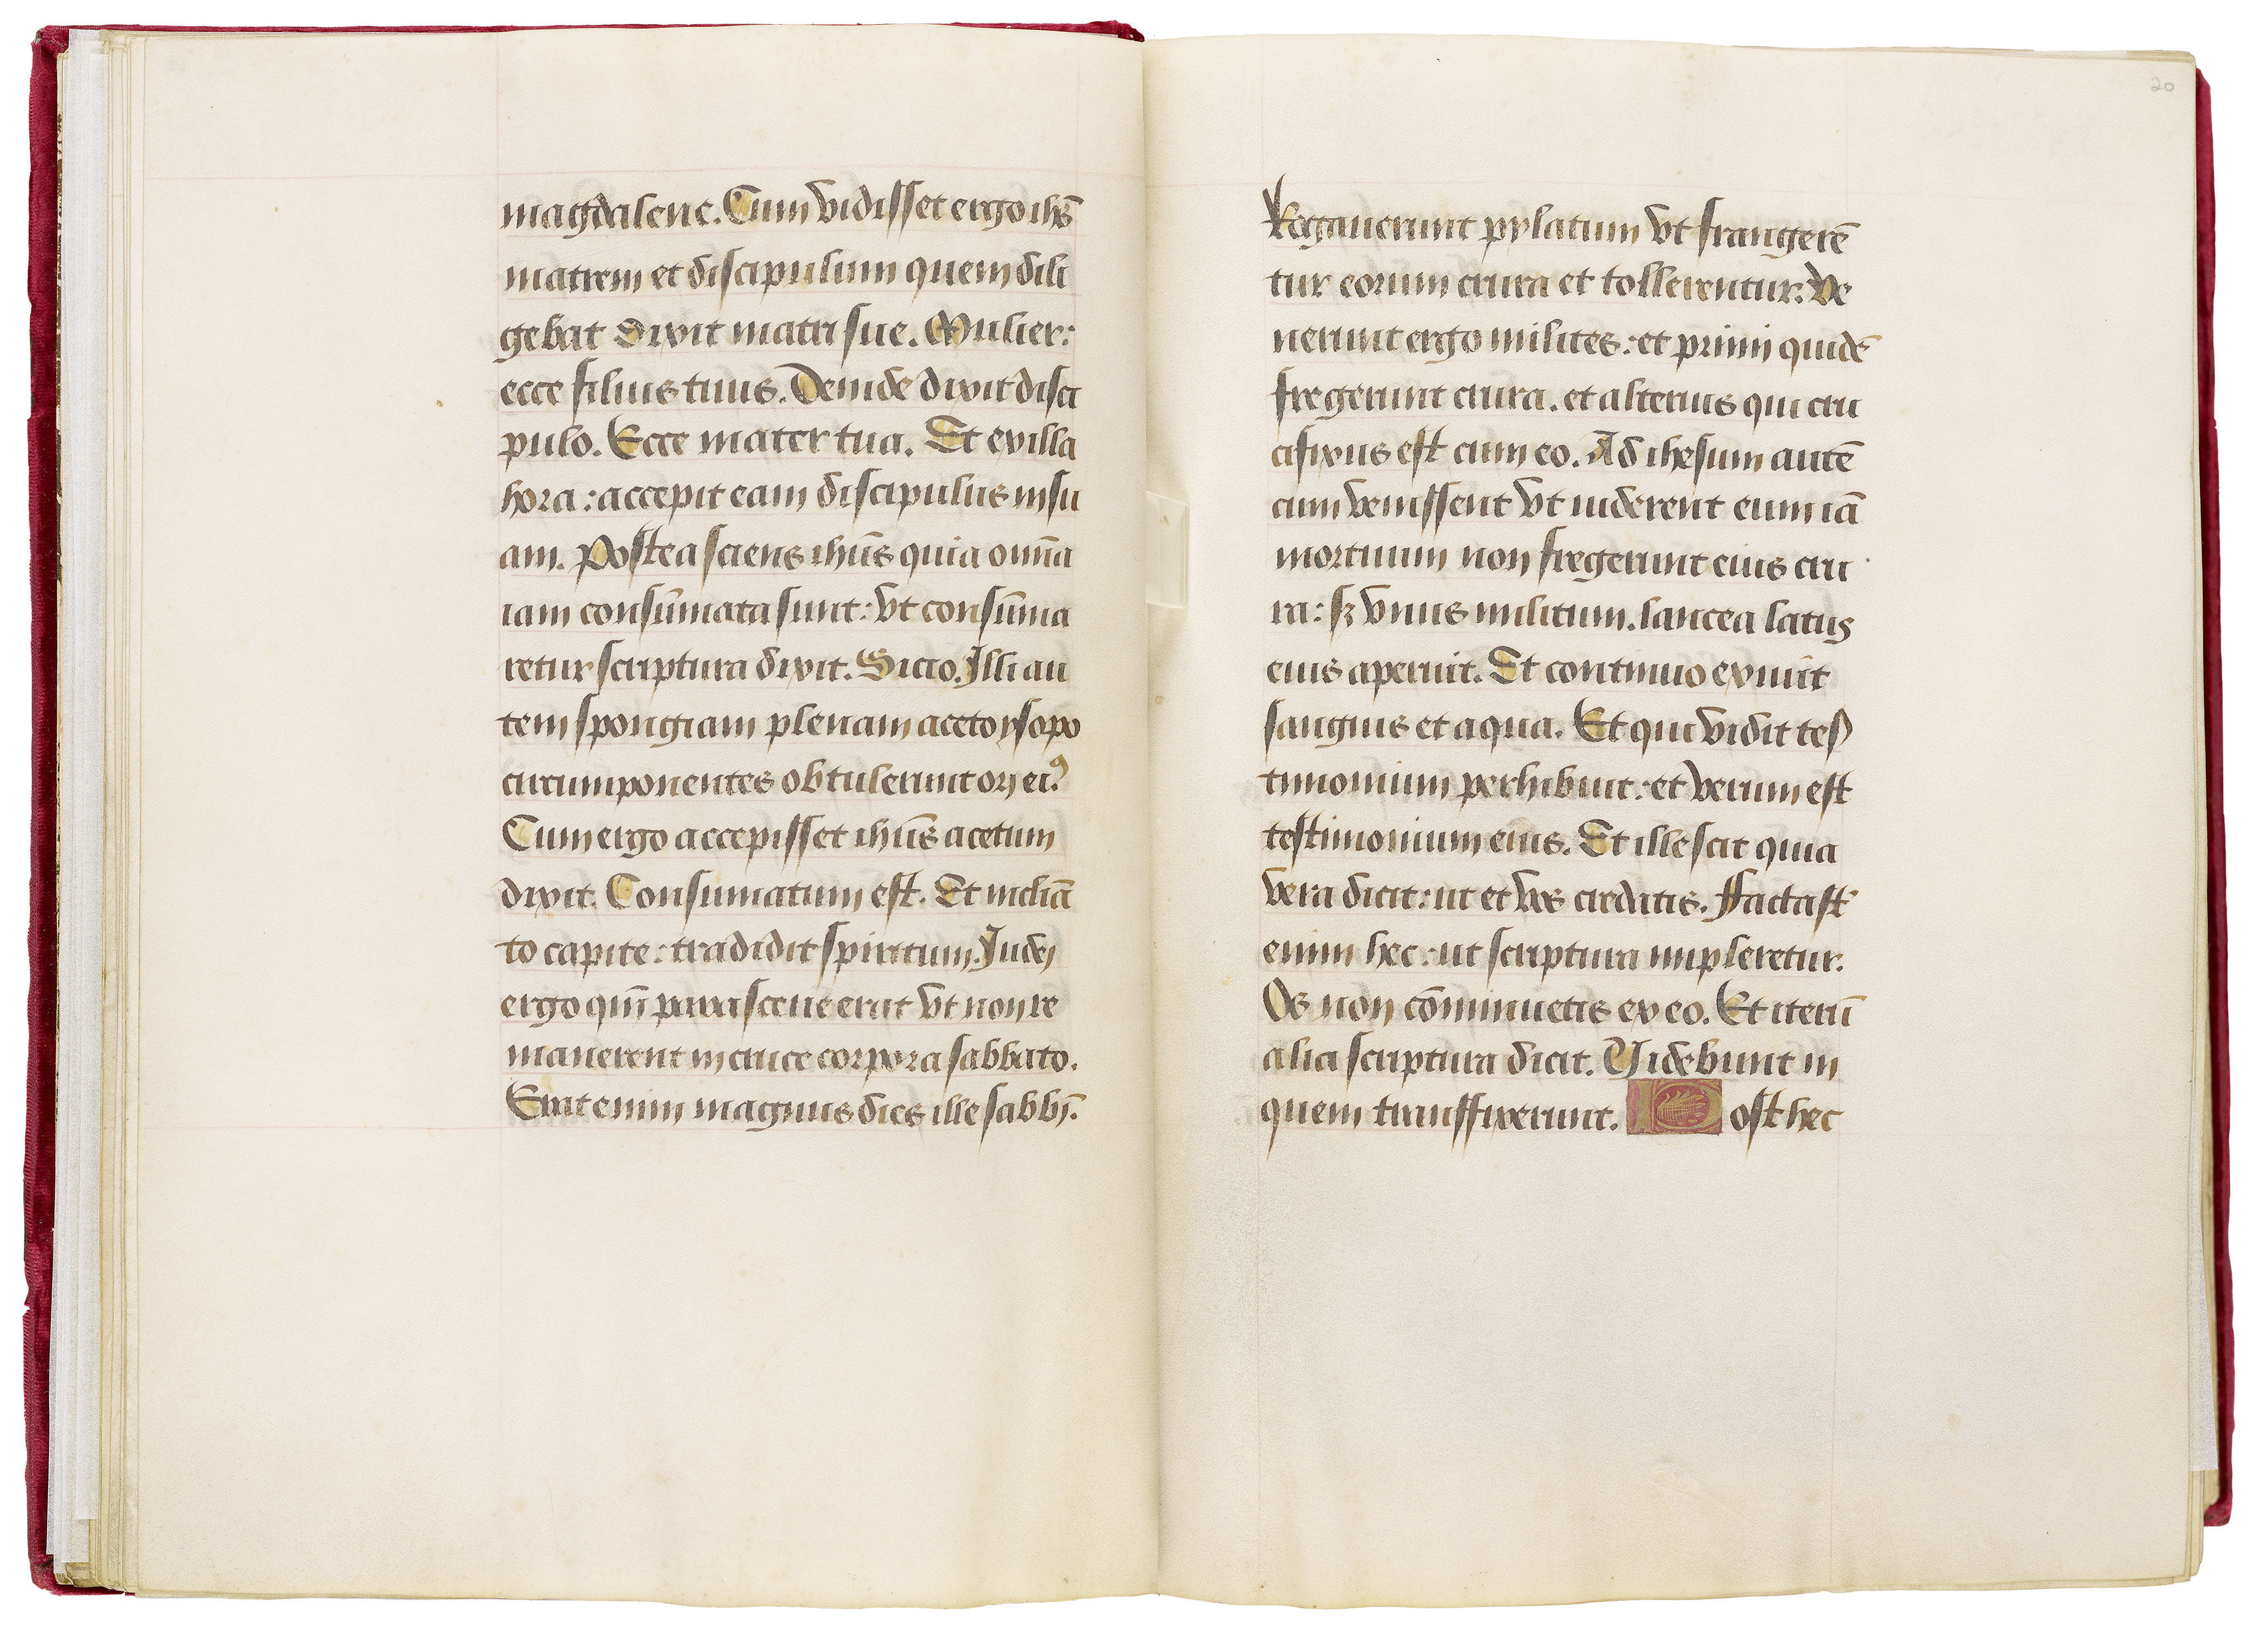 magdalene. Cum vidisset ergo ihs̄
matrem et discipulum quem dili
gebat dixit matri sue. Mulier:
ecce filius tuus. Deinde dixit disci
pulo. Ecce mater tua. Et ex illa
hora: accepit eam discipulus in su
am. Postea sciens ihūs quia om̄ia
iam consūmata sunt: vt consūma
retur scriptura dixit. Sicio. Illi au
tem spongiam plenam aceto ysopo
circumponentes obtulerunt orj eiꝰ.
Cum ergo accepisset ihūs acetum
dixit. Consumatum est. Et incliā
to capite: tradidit spiritum. Judej
ergo qm̄ parasceue erat vt non re
manerent in cruce corpora sabbato.
Erat enim magnus dies ille sabbī.
20
Rogauerunt pylatum vt frangerē
tur eorum crura et tollerentur. Ve
nerunt ergo milites: et primj quidē
fregerunt crura. et alterius qui cru
cifixus est cum eo. Ad ihesum autē
cum venissent vt uiderent eum iā
mortuum non fregerunt eius cru
ra: sꝫ vnus militum. lancea latus
eius aperuit. Et continuo exiuit
sanguis et aqua. Et qui vidit tes
timonium perhibuit: et verum est
testimonium eius. Et ille scit quia
vera dicit: ut et vos credatis. Ffacta st̄
enim hec: ut scriptura impleretur.
Os non cōminuetis ex eo. Et iterū
alia scriptura dicit. Videbunt in
quem transffixerunt. Post hec